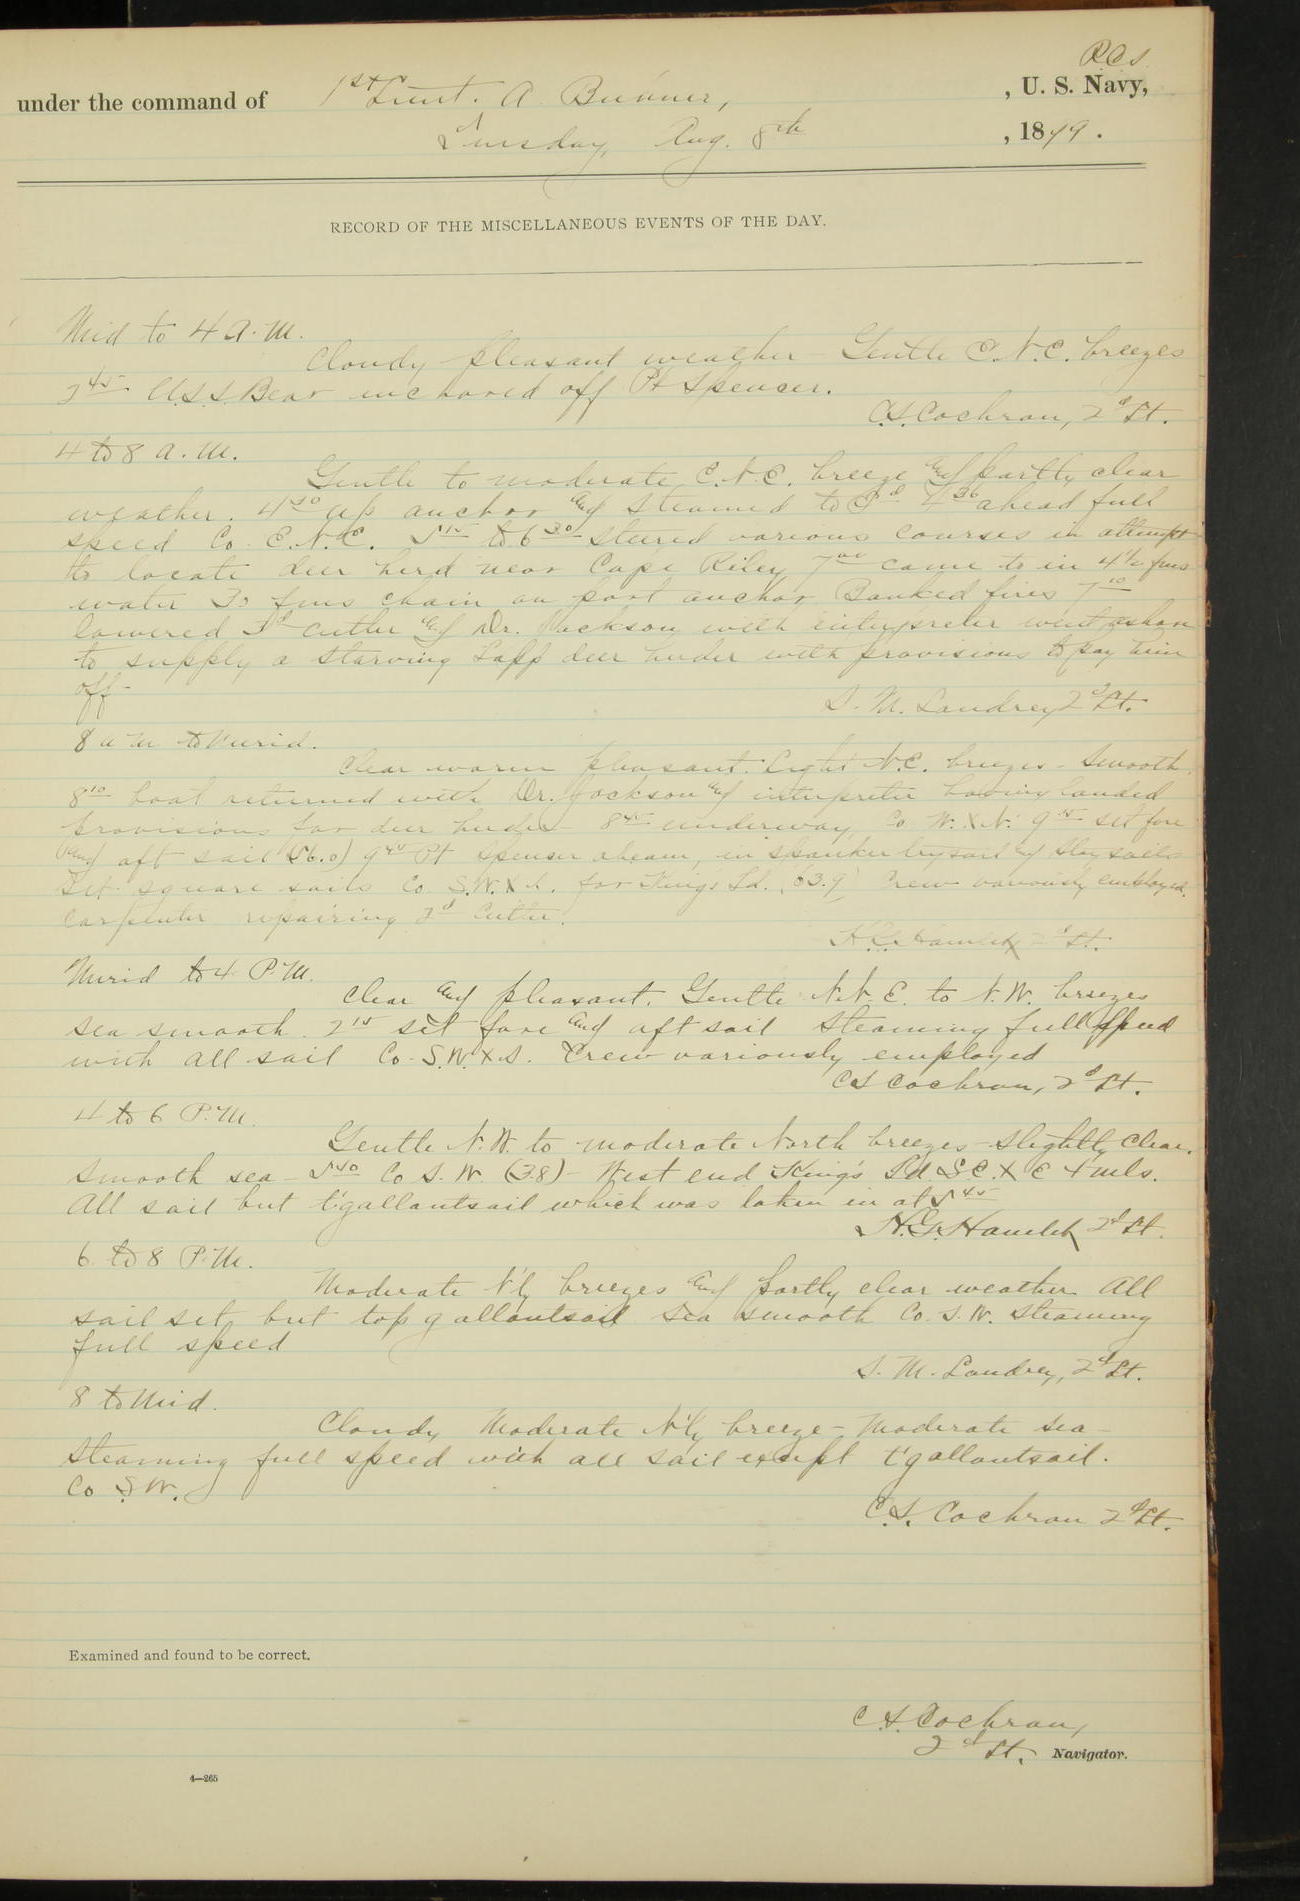 R.C.S.
under the command of 1st Lieut. A. Buhner, , U. S. Navy,
Tuesday, Aug. 8th , 1899.
RECORD OF THE MISCELLANEOUS EVENTS OF THE DAY.
Mid to 4 A.M.
Cloudy pleasant weather - Gentle E.N.E. breezes
U.S.S. Bear anchored off Pt Spencer.
C.S. Cochran, 2d Lt.
4 to 8 A.M.
Gentle to moderate E.N.E. breeze and partly clear
weather. up anchor and steamed to ahead full
speed Co. E.N.E. 5 15 to 6 30 steered various courses in attempt
to locate deer herd near Cape Riley 7 00 came to in 4 1/2 fms
water 30 fms chain on port anchor Banked fires 7 10
lowered cutter and Dr. Jackson with interpreter went ashore
to supply a starving Lapp deer herder with provisions & pay him
off -
S. M. Landrey 2d Lt.
8 a m to Merid.
Clear warm pleasant. Light N.E. breezes - Smooth.
8 10 boat returned with Dr. Jackson and interpreter having landed
provisions for deer herder - 8 45 underway, Co. W. x N. 9 15 set fore
and aft sail (56.0) 9 40 Pt Spencer abeam, in spanker trysail & stay sails
Set square sails Co. S.W. x S. for King's Id. (63.9) Crew variously employed.
Carpenter repairing 2d Cutter.
H.G. Hamlet 2d Lt.
Merid to 4 P.M.
Clear and pleasant. Gentle N.N.E. to N.W. breezes
sea smooth. 2 15 set fore and aft sail Steaming full speed
with all sail Co. S.W. x S. Crew variously employed
C S Cochran, 2d Lt.
4 to 6 P.M.
Gentle N.W. to moderate North breezes - Slightly Clear.
Smooth sea - 5 40 Co S.W. (38) - West end King's Id S.E. x E 4 mls.
All sail but t'gallantsail which was taken in at 5 45
H.G. Hamlet 2d Lt.
6 to 8 P.M.
Moderate N'ly breezes and partly clear weather All
sail set but top gallantsail Sea smooth Co. S.W. Steaming
full speed
S. M. Landrey, 2d Lt.
8 to Mid.
Cloudy Moderate N'ly breeze - Moderate sea -
Steaming full speed with all sail except t'gallantsail.
Co S.W.
C.S. Cochran 2d Lt.
Examined and found to be correct.
C.S. Cochran,
2d Lt. Navigator.
4—265